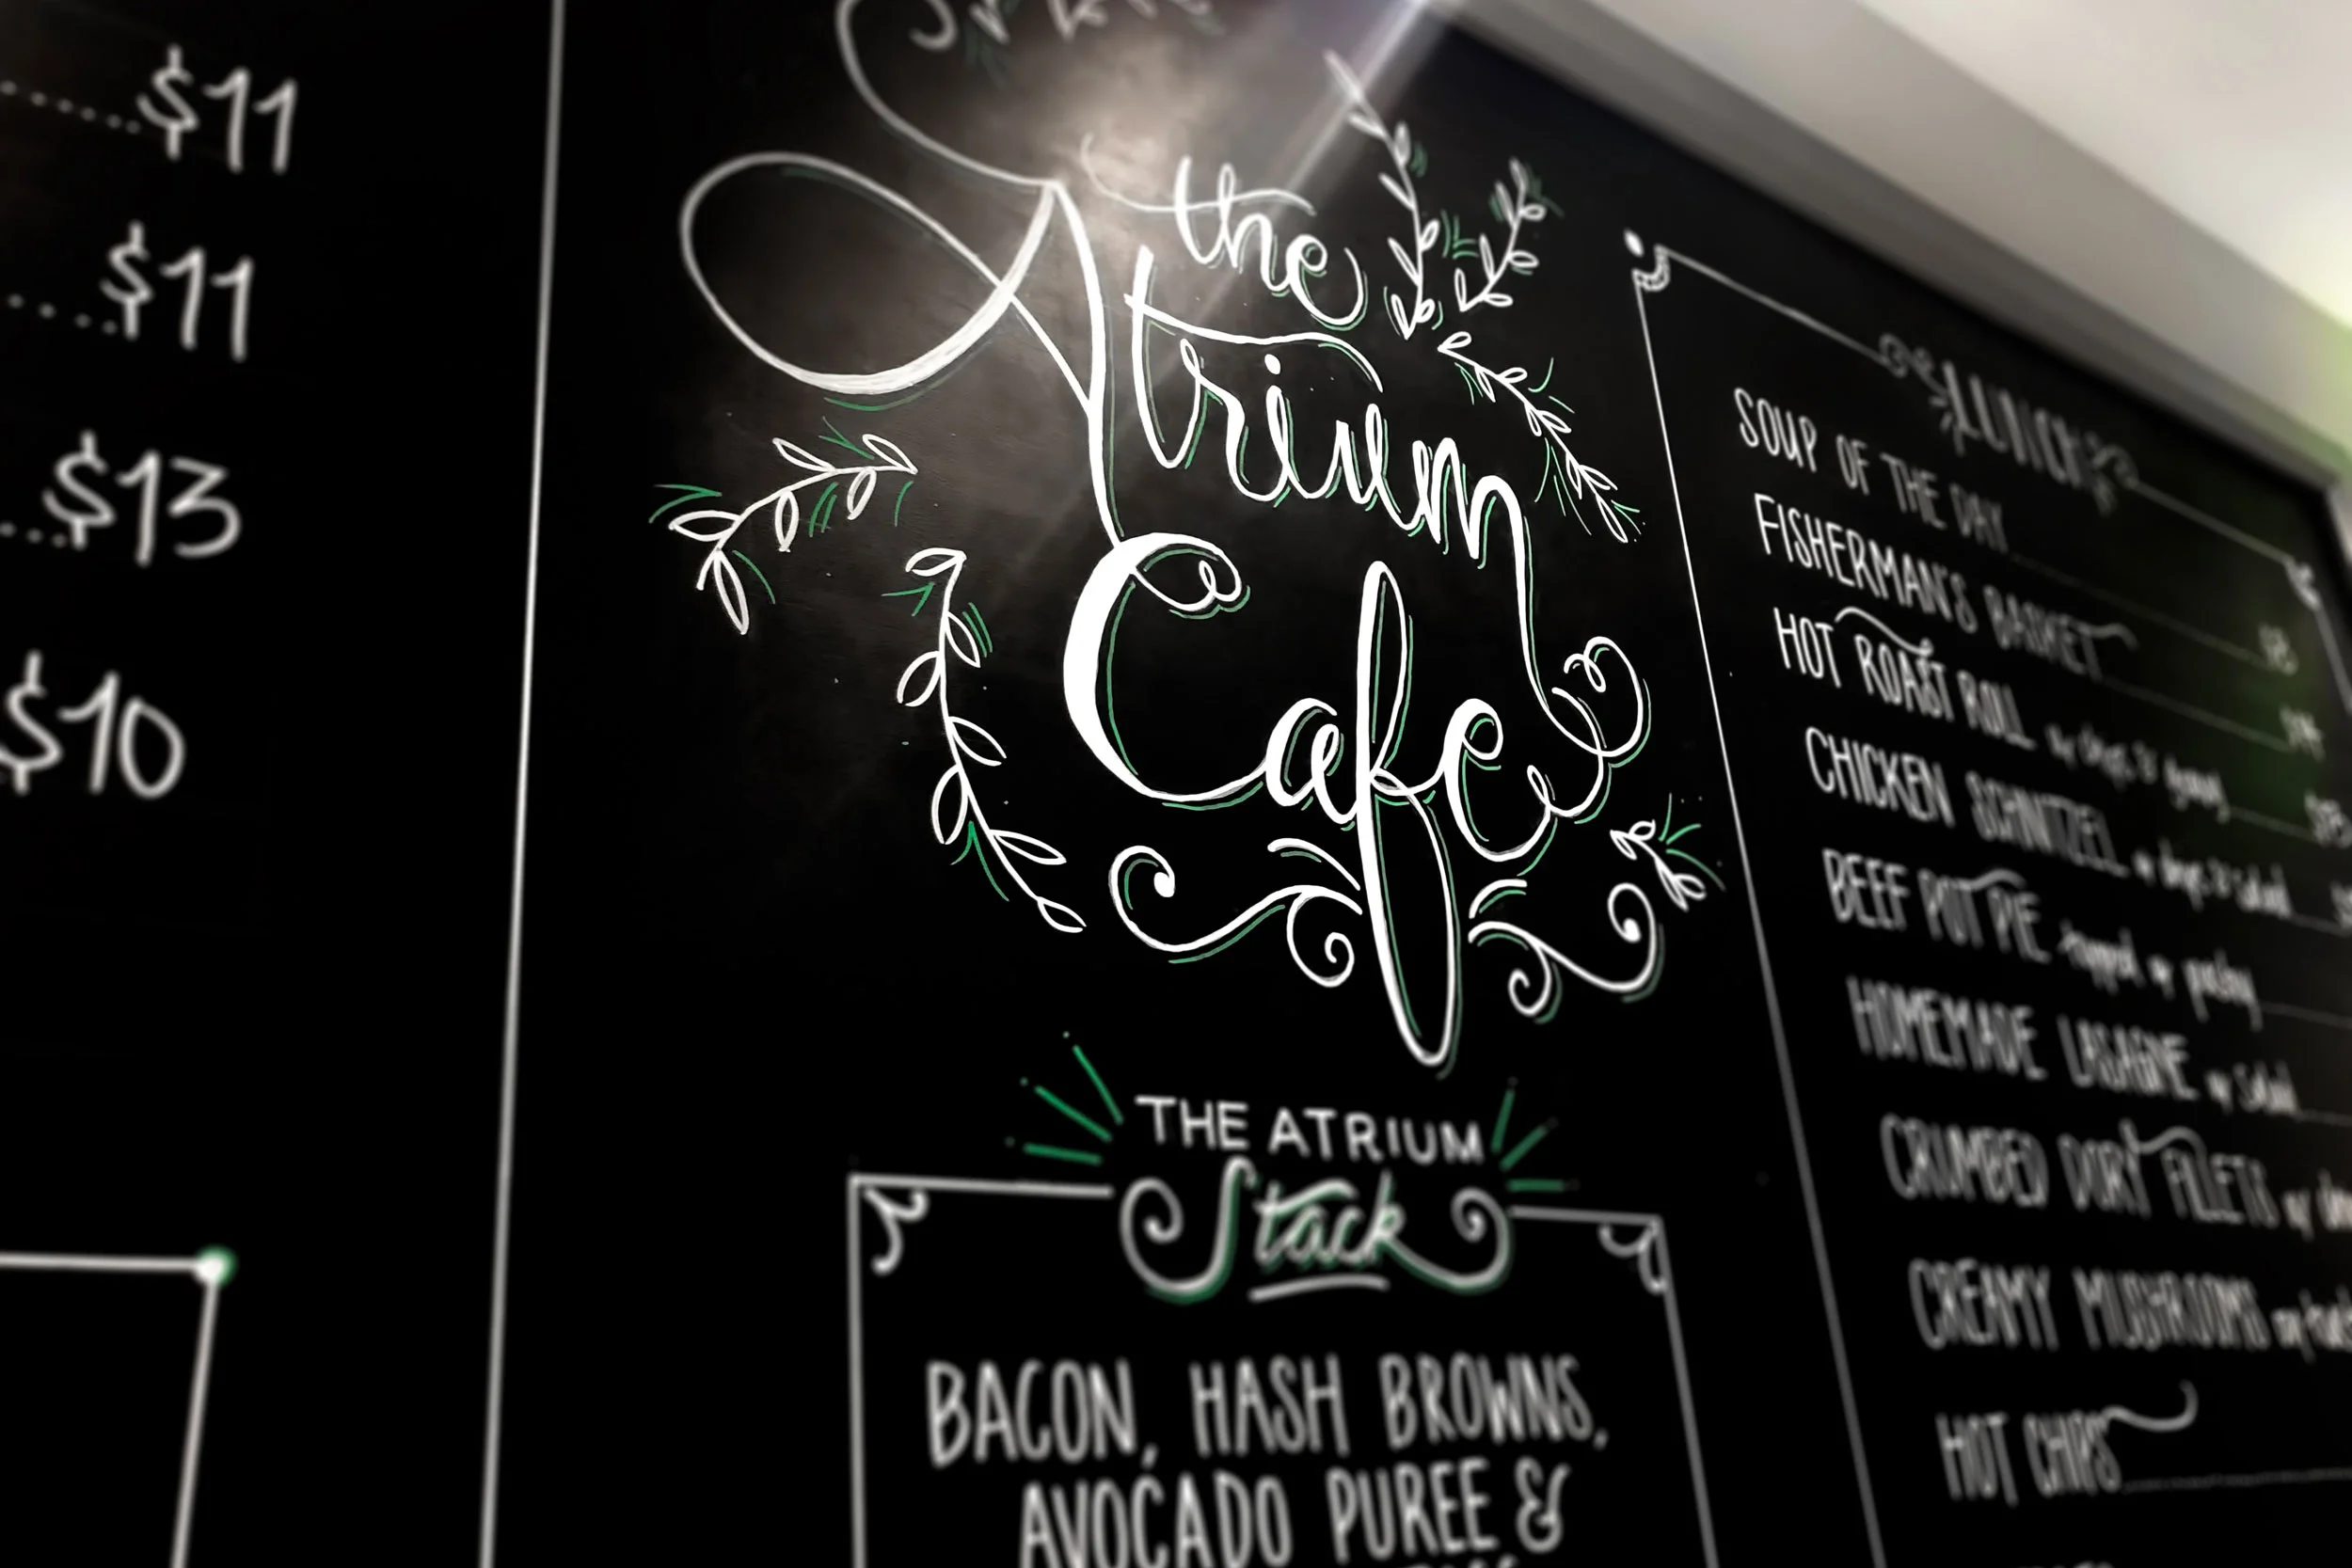 $11
$11
$13
$10
the
Atrium
Cafe
THE ATRIUM
Stack
BACON, HASH BROWNS,
AVOCADO PUREE &
LUNCH
SOUP OF THE DAY
FISHERMAN'S BASKET
HOT ROAST ROLL
CHICKEN SCHNITZEL
BEEF POT PIE topped w pastry
HOMEMADE LASAGNE w salad
CRUMBED DORY FILLETS
CREAMY MUSHROOMS
HOT CHIPS